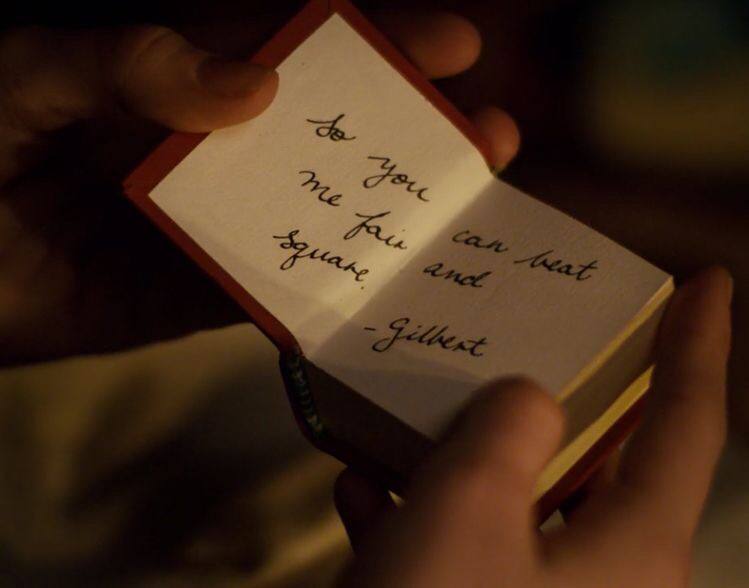 So you can beat
me fair and
square.
-Gilbert